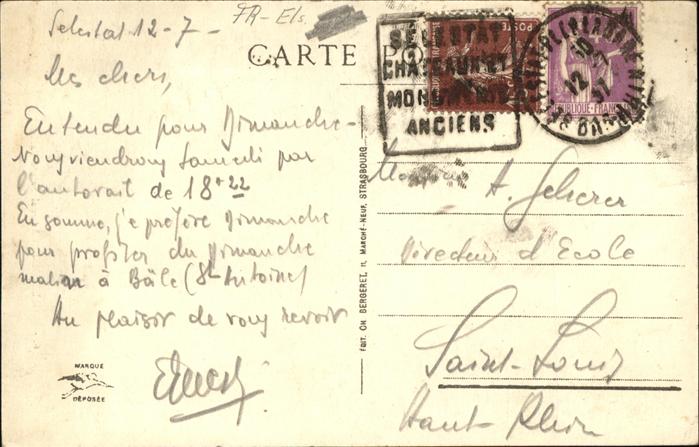 Selestat 12-7-
FR-Els.
CARTE PO
SÉLESTAT
CHATEAUX ET
MONUMENTS
ANCIENS
POSTES
12
37
BAS-RHIN
Mes chers,
Entendu pour Dimanche-
Nous viendrons Samedi par
l'autorail de 18h22
En somme, je préfère Dimanche
pour profiter du Dimanche
matin à Bâle (St-Antoine)
Au plaisir de vous revoir
MARQUE
DÉPOSÉE
EDIT. CH BERGERET, 11, MARCHÉ-NEUF, STRASBOURG
Monsieur
A. Scherer
Directeur d'Ecole
Saint-Louis
Haut-Rhin